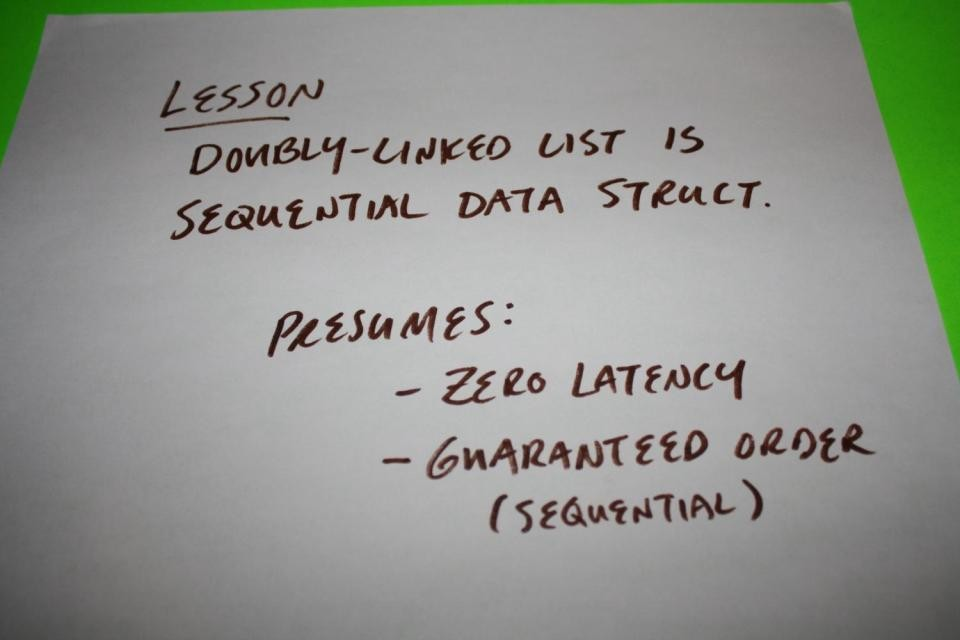 LESSON
DOUBLY-LINKED LIST IS
SEQUENTIAL DATA STRUCT.
PRESUMES:
- ZERO LATENCY
- GUARANTEED ORDER
(SEQUENTIAL)